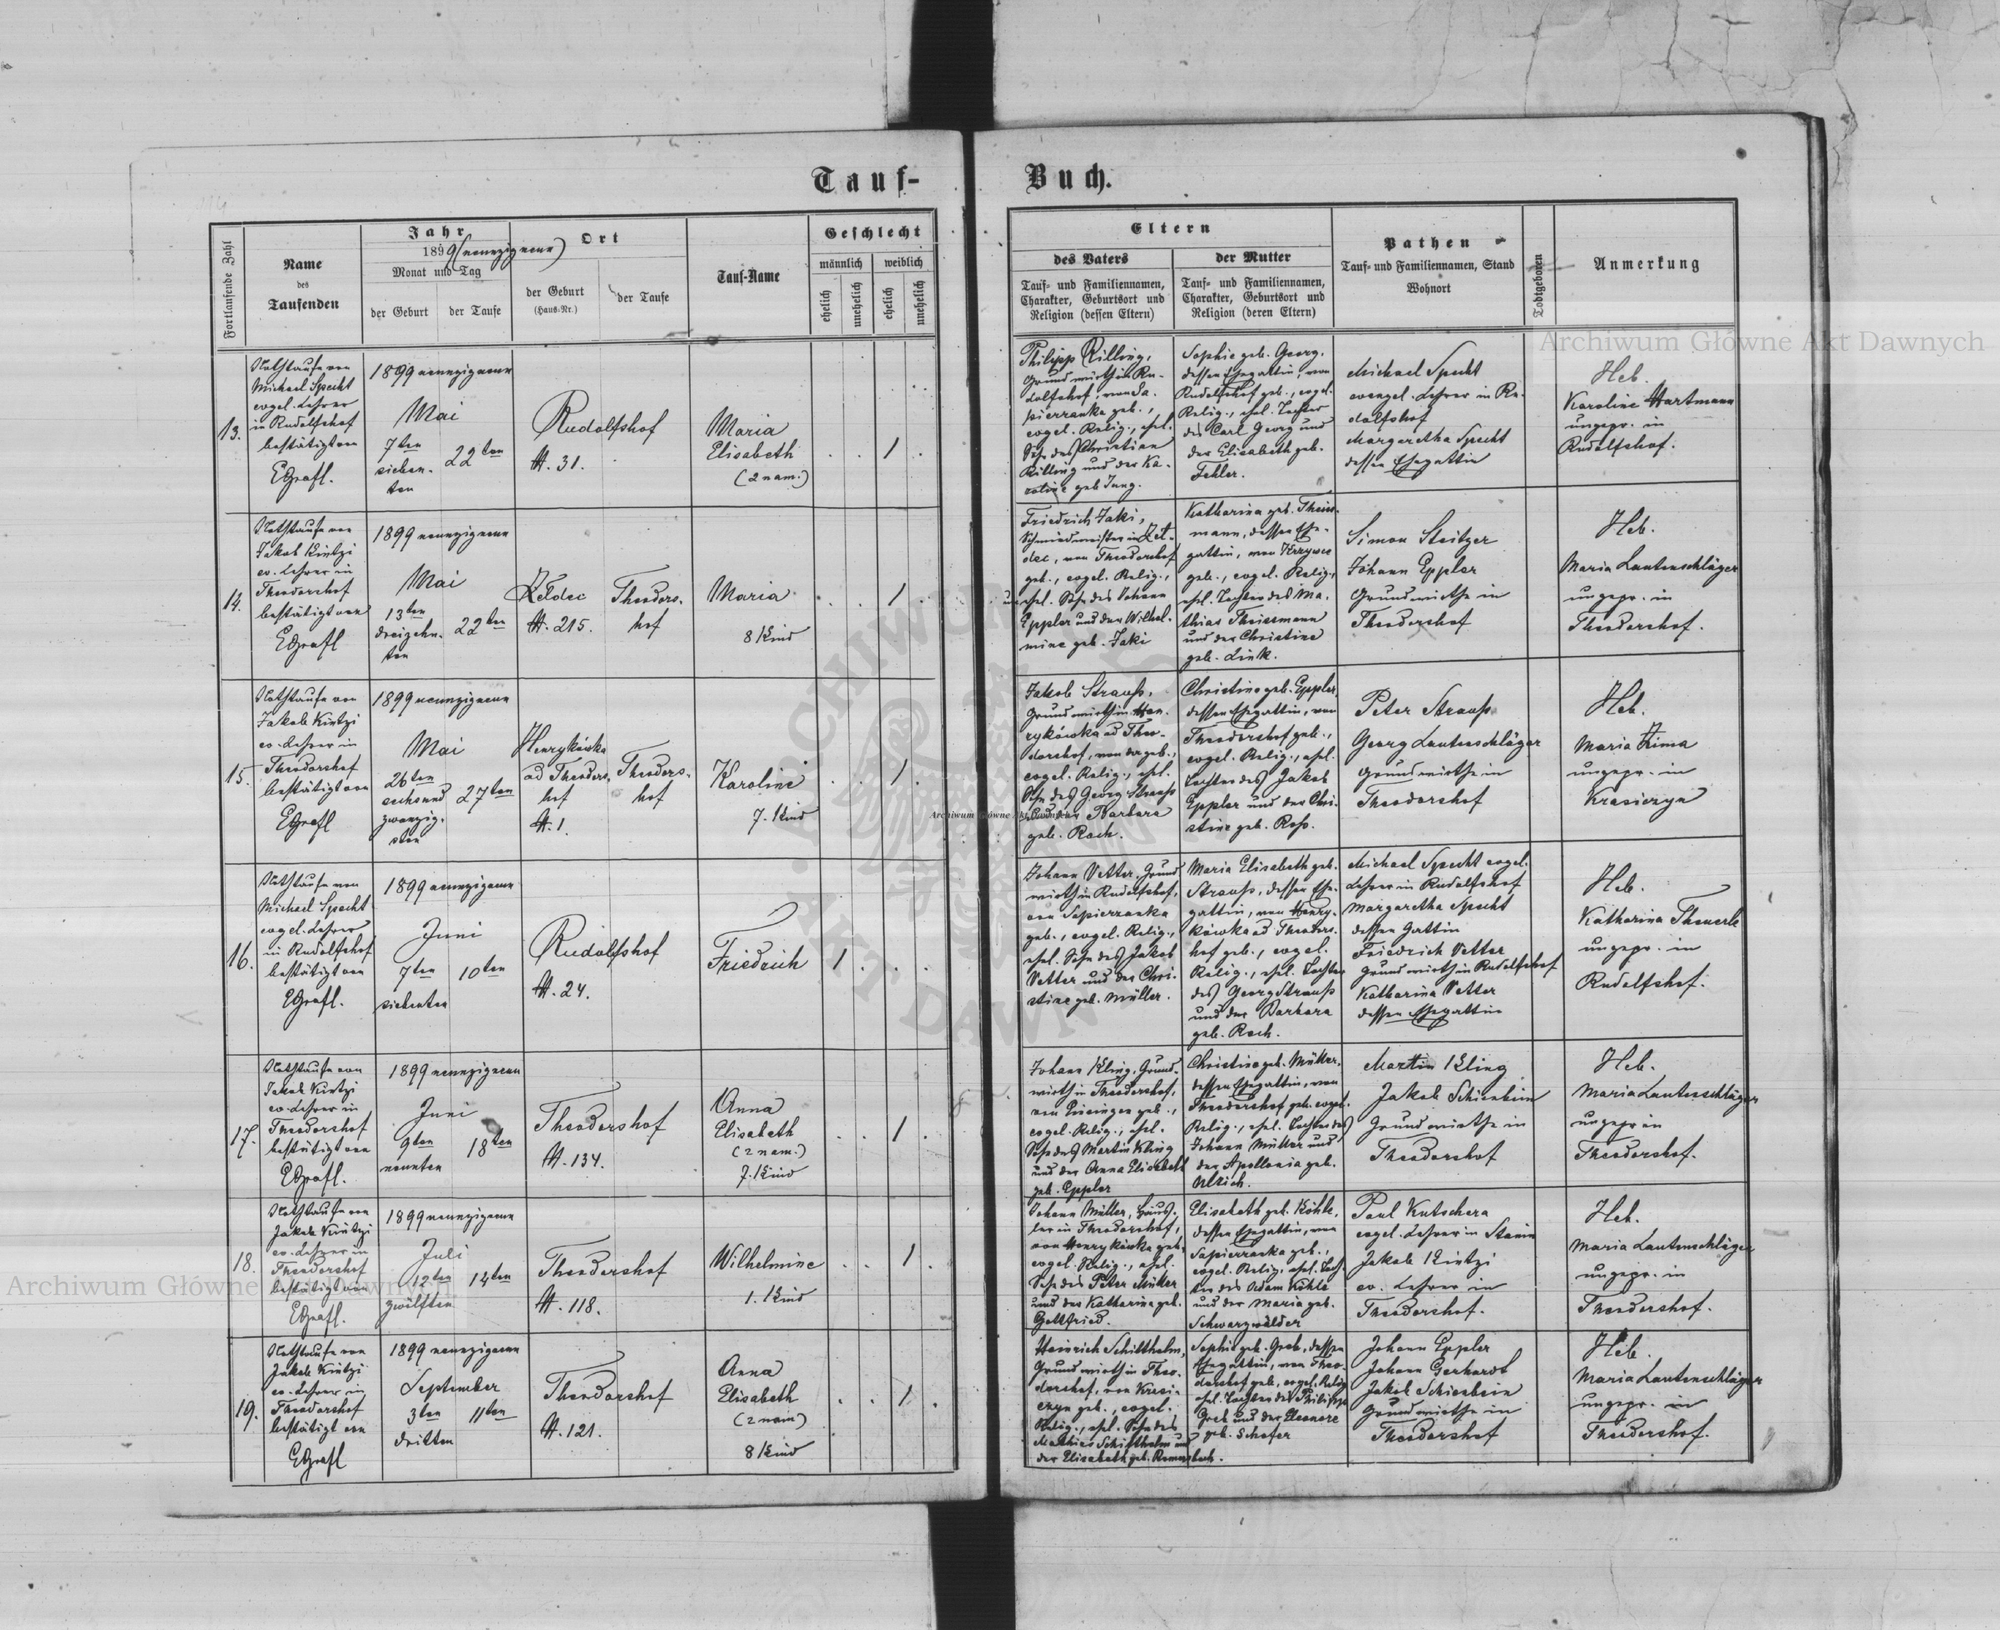 Tauf-
Buch.
Fortlaufende Zahl
Name
des
Taufenden
Jahr
1899 (neunzigneun)
Monat und Tag
der Geburt
der Taufe
Ort
der Geburt
(Haus-Nr.)
der Taufe
Tauf-Name
Geschlecht
männlich
weiblich
ehelich
unehelich
ehelich
unehelich
Eltern
des Vaters
Tauf- und Familiennamen,
Charakter, Geburtsort und
Religion (dessen Eltern)
der Mutter
Tauf- und Familiennamen,
Charakter, Geburtsort und
Religion (deren Eltern)
Pathen
Tauf- und Familiennamen, Stand
Wohnort
Todtgeboren
Anmerkung
13.
Nothtaufe von
Michael Specht
evgel. Lehrer
in Rudolfshof
bestätigt von
1899 neunzigneun
Mai
7ten
sieben-
ten
22ten
Rudolfshof
N. 31.
Maria
Elisabeth
(2 nam.)
1
Philipp Rilling,
Grundwirth in Ru-
dolfshof, von Sa-
pierzanka geb.,
evgel. Relig., ehel.
Sohn des Christian
Rilling und der Ka-
roline geb Jung.
Sophie geb. Georg,
dessen Ehegattin, von
Rudolfshof geb., evgel.
Relig., ehel. Tochter
des Carl Georg und
der Elisabeth geb.
Fehler.
Michael Specht
evangel. Lehrer in Ru-
dolfshof
Margaretha Specht
dessen Ehegattin
Heb.
Karoline Hartmann
ungepr. in
Rudolfshof.
14.
Nothtaufe von
Jakob Kintzi
ev. Lehrer in
Theodorshof
bestätigt von
1899 neunzigneun
Mai
13ten
dreizehn-
ten
22ten
Żeldec
N. 215.
Theodors-
hof
Maria
8 Kind
1
Friedrich Jaki,
Schmiedmeister in Żel-
dec, von Theodorshof
geb., evgel. Relig.,
unehel. Sohn des Johann
Eppler und der Wilhel-
mine geb. Jaki
Katharina geb. Theiss-
mann, dessen Ehe-
gattin, von
geb., evgel. Relig.,
ehel. Tochter des Ma-
thias Theissmann
und der Christine
geb. Link.
Simon Steitzer
Johann Eppler
Grundwirthe in
Theodorshof
Heb.
Maria Lautenschläger
ungepr. in
Theodorshof.
15.
Nothtaufe von
Jakob Kintzi
ev. Lehrer in
Theodorshof
bestätigt von
1899 neunzigneun
Mai
26ten
sechsund
zwanzig-
sten
27ten
Henrykówka
ad Theodors-
hof
N. 1.
Theodors-
hof
Karoline
7. Kind
1
Jakob Strauss,
Grundwirth in Hen-
rykówka ad Theo-
dorshof, von da geb.,
evgel. Relig., ehel.
Sohn des Georg Strauss
und der Barbara
geb. Roch.
Christine geb. Eppler,
dessen Ehegattin, von
Theodorshof geb.,
evgel. Relig., ehel.
Tochter des Jakob
Eppler und der Chri-
stine geb. Ross.
Peter Strauss
Georg Lautenschläger
Grundwirthe in
Theodorshof
Heb.
Maria Zima
ungepr. in
Krasiczyn
16.
Nothtaufe von
Michael Specht
evgel. Lehrer
in Rudolfshof
bestätigt von
1899 neunzigneun
Juni
7ten
siebenten
10ten
Rudolfshof
N. 24.
Friedrich
1
Johann Vetter, Grund
wirth in Rudolfshof,
von Sapierzanka
geb., evgel. Relig.,
ehel. Sohn des Jakob
Vetter und der Chri-
stine geb. Müller.
Maria Elisabeth geb.
Strauss, dessen Ehe-
gattin, von Henry-
kówka ad Theodors-
hof geb., evgel.
Relig., ehel. Tochter
des Georg Strauss
und der Barbara
geb. Roch.
Michael Specht evgel.
Lehrer in Rudolfshof
Margaretha Specht
dessen Gattin
Friedrich Vetter
Grundwirth in Rudolfshof
Katharina Vetter
dessen Ehegattin
Heb.
Katharina Theuerle
ungepr. in
Rudolfshof.
17.
Nothtaufe von
Jakob Kintzi
ev. Lehrer in
Theodorshof
bestätigt von
1899 neunzigneun
Juni
9ten
neunten
18ten
Theodorshof
N. 134.
Anna
Elisabeth
(2 nam.)
7. Kind
1
Johann Kling, Grund-
wirth in Theodorshof,
von geb.,
evgel. Relig., ehel.
Sohn des Martin Kling
und der Anna Elisabeth
geb. Eppler
Christine geb. Müller,
dessen Ehegattin, von
Theodorshof geb. evgel.
Relig., ehel. Tochter des
Johann Müller und
der Apollonia geb.
Ulrich.
Martin Kling
Jakob Schienbein
Grundwirthe in
Theodorshof
Heb.
Maria Lautenschläger
ungepr in
Theodorshof.
18.
Nothtaufe von
Jakob Kintzi
ev. Lehrer in
Theodorshof
bestätigt von
1899 neunzigneun
Juli
12ten
zwölften
14ten
Theodorshof
N. 118.
Wilhelmine
1. Kind
1
Johann Müller, Häus-
ler in Theodorshof,
von Henrykówka geb.,
evgel. Relig., ehel.
Sohn des Peter Müller
und der Katharina geb.
Gottfried.
Elisabeth geb. Köhle,
dessen Ehegattin, von
Sapierzanka geb.,
evgel. Relig. ehel. Toch-
ter des Adam Köhle
und der Maria geb.
Schwarzwälder
Paul Kutschera
evgel. Lehrer in Stanin
Jakob Kintzi
ev. Lehrer in
Theodorshof.
Heb.
Maria Lautenschläger
ungepr. in
Theodorshof.
19.
Nothtaufe von
Jakob Kintzi
ev. Lehrer in
Theodorshof
bestätigt von
1899 neunzigneun
September
3ten
dritten
11ten
Theodorshof
N. 121.
Anna
Elisabeth
(2 nam)
8 Kind
1
Heinrich Schitthelm,
Grundwirth in Theo-
dorshof, von Krasi-
czyn geb., evgel.
Relig., ehel. Sohn des
Mathias Schitthelm und
der Elisabeth geb.
Sophie geb. Greb, dessen
Ehegattin, von Theo-
dorshof geb., evgel. Relig.
ehel. Tochter des Philipp
Greb und der Eleonore
geb. Schäfer
Johann Eppler
Johann Gerhardt
Jakob Schienbein
Grundwirthe in
Theodorshof
Heb.
Maria Lautenschläger
ungepr. in
Theodorshof.
Archiwum Główne Akt Dawnych
Archiwum Główne Akt Dawnych
Archiwum Główne Akt Dawnych